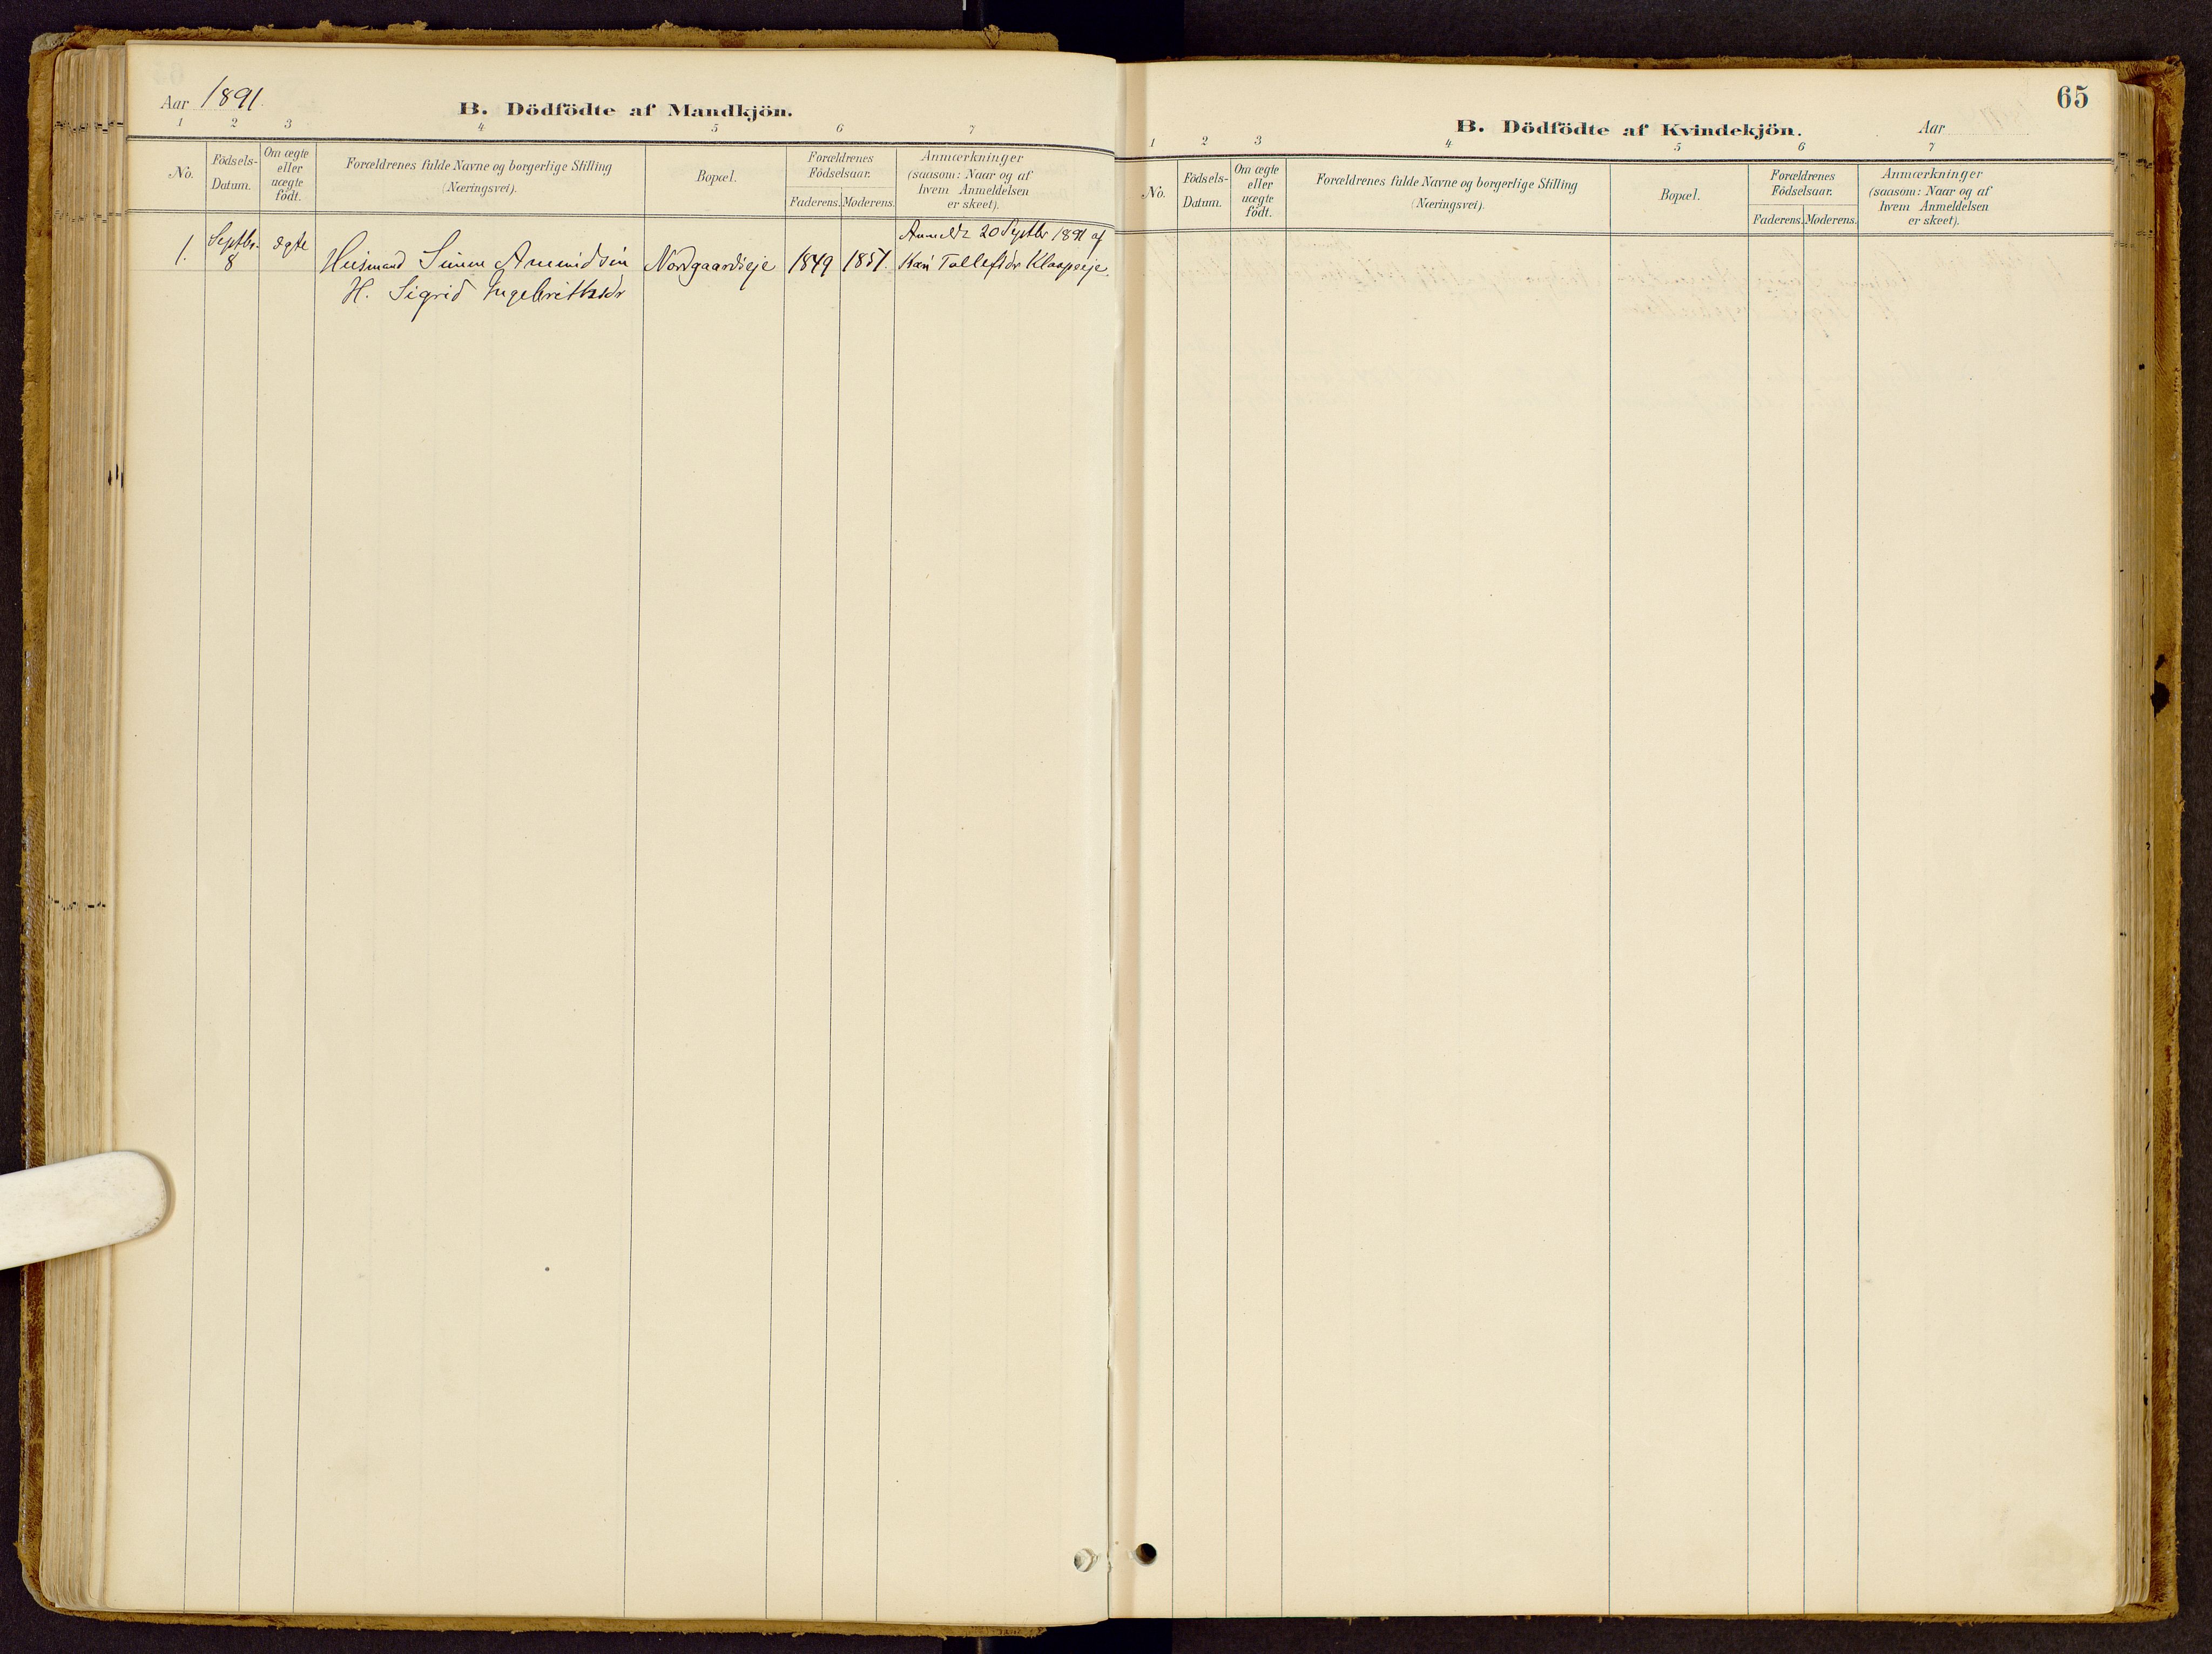 Aar 1891.
B. Dödfödte af Mandkjön.
1 2 3 4 5 6 7
No. Födsels-Datum. Om ægte eller uægte födt. Forældrenes fulde Navne og borgerlige Stilling (Næringsvei). Bopæl. Forældrenes Födselsaar. Faderens. Moderens. Anmærkninger (saasom: Naar og af hvem Anmeldelsen er skeet).
1. Septbr. 8 ægte Husmand Simen Amundsen Nordgaardseje 1849 1851. Anmeldt 20 Septbr 1891 af
H. Sigrid Ingebrithsdr Kari Tollefsdr Klaapeeje.
65
B. Dödfödte af Kvindekjön.
Aar
1 2 3 4 5 6 7
No. Födsels-Datum. Om ægte eller uægte födt. Forældrenes fulde Navne og borgerlige Stilling (Næringsvei). Bopæl. Forældrenes Födselsaar. Faderens. Moderens. Anmærkninger (saasom: Naar og af hvem Anmeldelsen er skeet).